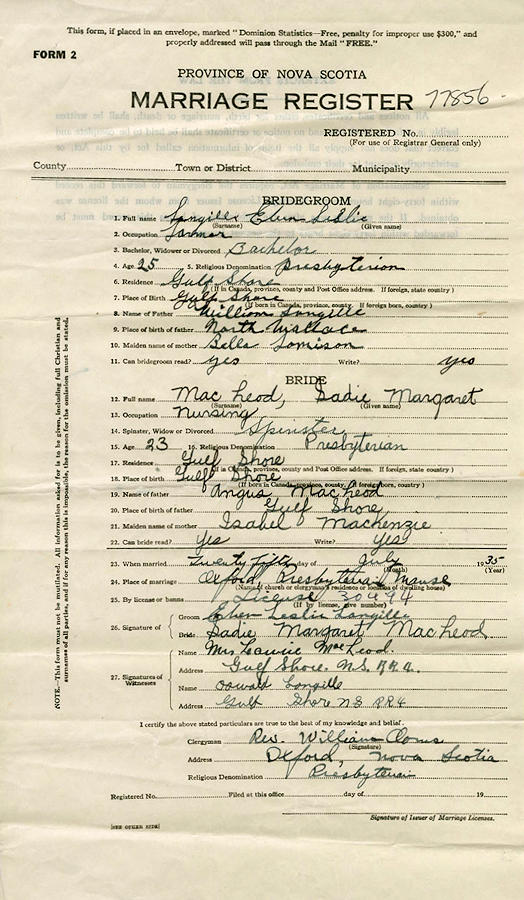 This form, if placed in an envelope, marked "Dominion Statistics—Free, penalty for improper use $300," and
properly addressed will pass through the Mail "FREE."
FORM 2
PROVINCE OF NOVA SCOTIA
MARRIAGE REGISTER 77856
REGISTERED No.
(For use of Registrar General only)
County Town or District Municipality
BRIDEGROOM
1. Full name Langille Eben Leslie
(Surname) (Given name)
2. Occupation Farmer
3. Bachelor, Widower or Divorced Bachelor
4. Age 25 5. Religious Denomination Presbyterian
6. Residence Gulf Shore
(If in Canada, province, county and Post Office address. If foreign, state country)
7. Place of Birth Gulf Shore
(If born in Canada, province, county. If foreign born, country)
8. Name of Father William Langille
9. Place of birth of father North Wallace
10. Maiden name of mother Bella Jamison
11. Can bridegroom read? yes Write? yes
BRIDE
12. Full name MacLeod, Sadie Margaret
(Surname) (Given name)
13. Occupation Nursing
14. Spinster, Widow or Divorced Spinster
15. Age 23 16. Religious Denomination Presbyterian
17. Residence Gulf Shore
(If in Canada, province, county and Post Office address. If foreign, state country)
18. Place of birth Gulf Shore
(If born in Canada, province, county. If foreign born, country)
19. Name of father Angus MacLeod
20. Place of birth of father Gulf Shore
21. Maiden name of mother Isabel Mackenzie
22. Can bride read? Yes Write? Yes
23. When married Twenty Fifth day of July 1935
(Month) (Year)
24. Place of marriage Oxford, Presbyterian Manse
(Name of church or clergyman's residence or location of dwelling house)
25. By license or banns License
(If by license, give number)
26. Signature of Groom Eben Leslie Langille
Bride Sadie Margaret MacLeod
27. Signatures of Witnesses
Name Mrs MacLeod.
Address Gulf Shore. N.S. RR4.
Name Oswald Langille
Address Gulf Shore NS RR4
I certify the above stated particulars are true to the best of my knowledge and belief.
Clergyman Rev. William
(Signature)
Address Oxford, Nova Scotia
Religious Denomination Presbyterian
Registered No. Filed at this office day of 19
Signature of Issuer of Marriage Licenses.
[SEE OTHER SIDE]
NOTE.—This form must not be mutilated. All information asked for is to be given, including full Christian and
surnames of all parties, and if for any reason this is impossible, the reason for the omission must be stated.